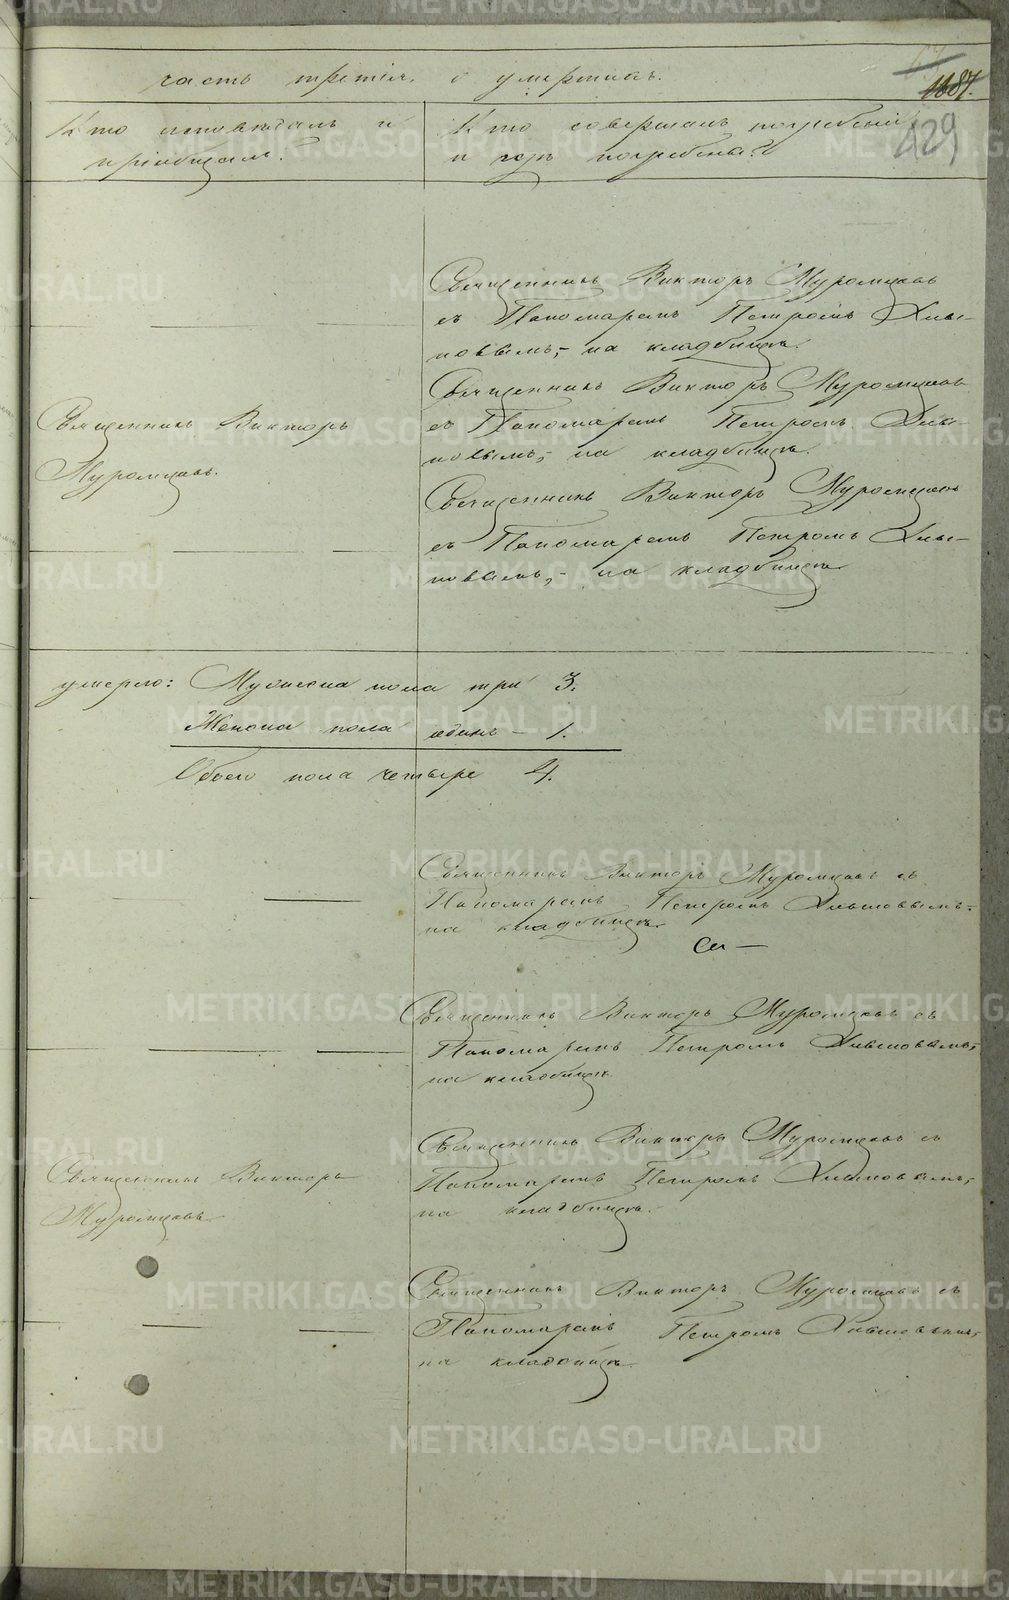 часть третія, о умершихъ.
1887.
129
Кто исповѣдалъ и
пріобщалъ?
Кто совершалъ погребеніе
и гдѣ погребены?
Священникъ Викторъ Муромцевъ
съ Пономаремъ Петромъ
новымъ, на кладбищѣ.
Священникъ Викторъ
Муромцевъ.
Священникъ Викторъ Муромцевъ
съ Пономаремъ Петромъ
новымъ, на кладбищѣ.
Священникъ Викторъ Муромцевъ
съ Пономаремъ Петромъ
новымъ, на кладбищѣ
умерло: Мужеска пола три 3.
Женска пола одинъ — 1.
Обоего пола четыре 4.
Священникъ Викторъ Муромцевъ съ
Пономаремъ Петромъ
на кладбищѣ.
Священникъ Викторъ Муромцевъ съ
Пономаремъ Петромъ
на кладбищѣ.
Священникъ Викторъ
Муромцевъ
Священникъ Викторъ Муромцевъ съ
Пономаремъ Петромъ
на кладбищѣ.
Священникъ Викторъ Муромцевъ съ
Пономаремъ Петромъ
на кладбищѣ.
METRIKI.GASO-URAL.RU